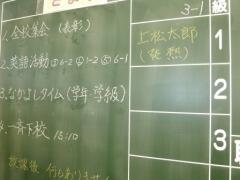 3-1 級
1. 全校集会 (表彰)
上松太郎
(発熱)
1
2. 英語活動 ③6-2 ④1-2 ⑤6-1
2
3. なかよしタイム (学年 学級)
4. 一斉下校 15:10
3
放課後 何もありません